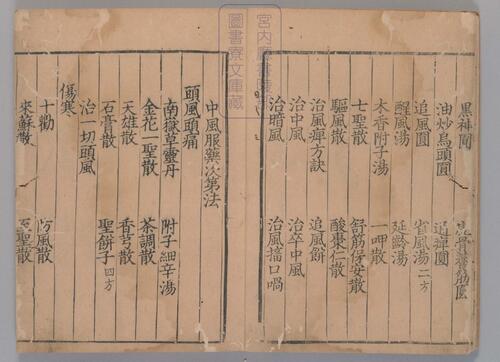 黑神圓
油炒烏頭圓
追風圓 追痺圓
醒風湯 省風湯二方
木香附子湯 延齡湯
七聖散 一呷散
驅風散 舒筋保安散
治風痺方訣 酸棗仁散
治中風 追風餅
治暗風 治卒中風
治風搐口喎
中風服藥次第法
頭風頭痛
南嶽草靈丹 附子細辛湯
金花一聖散 茶調散
天雄散 香芎散
石膏散 聖餅子四方
治一切頭風
傷寒
十勸 防風散
來蘇散 聖散
宮内廳書陵部
圖書寮文庫藏